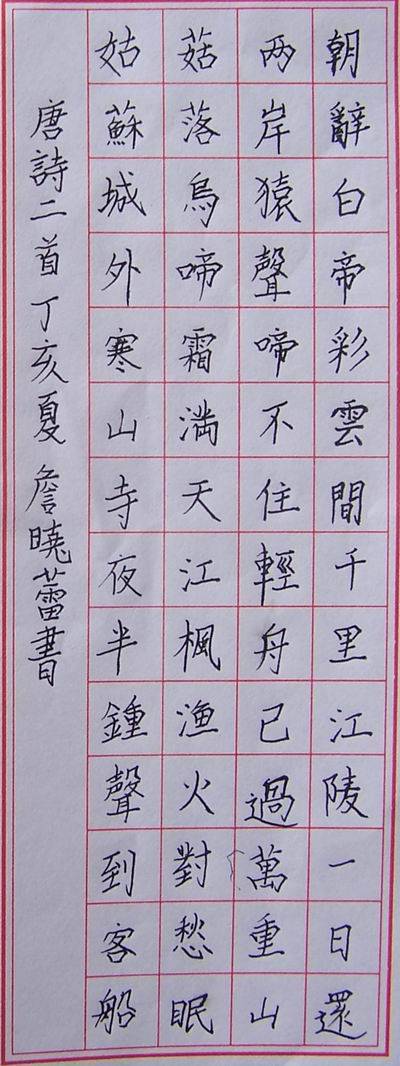 朝辭白帝彩雲間千里江陵一日還
两岸猿聲啼不住輕舟已過萬重山
菇落烏啼霜滿天江楓漁火對愁眠
姑蘇城外寒山寺夜半鍾聲到客船
唐詩二首丁亥夏 詹曉蕾書